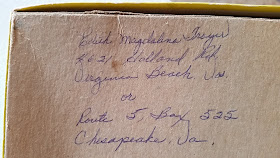 Edith Magdalina Troyer
2621 Holland Rd.
Virginia Beach Va.
or
Route 5 Box 525
Chesapeake, Va.